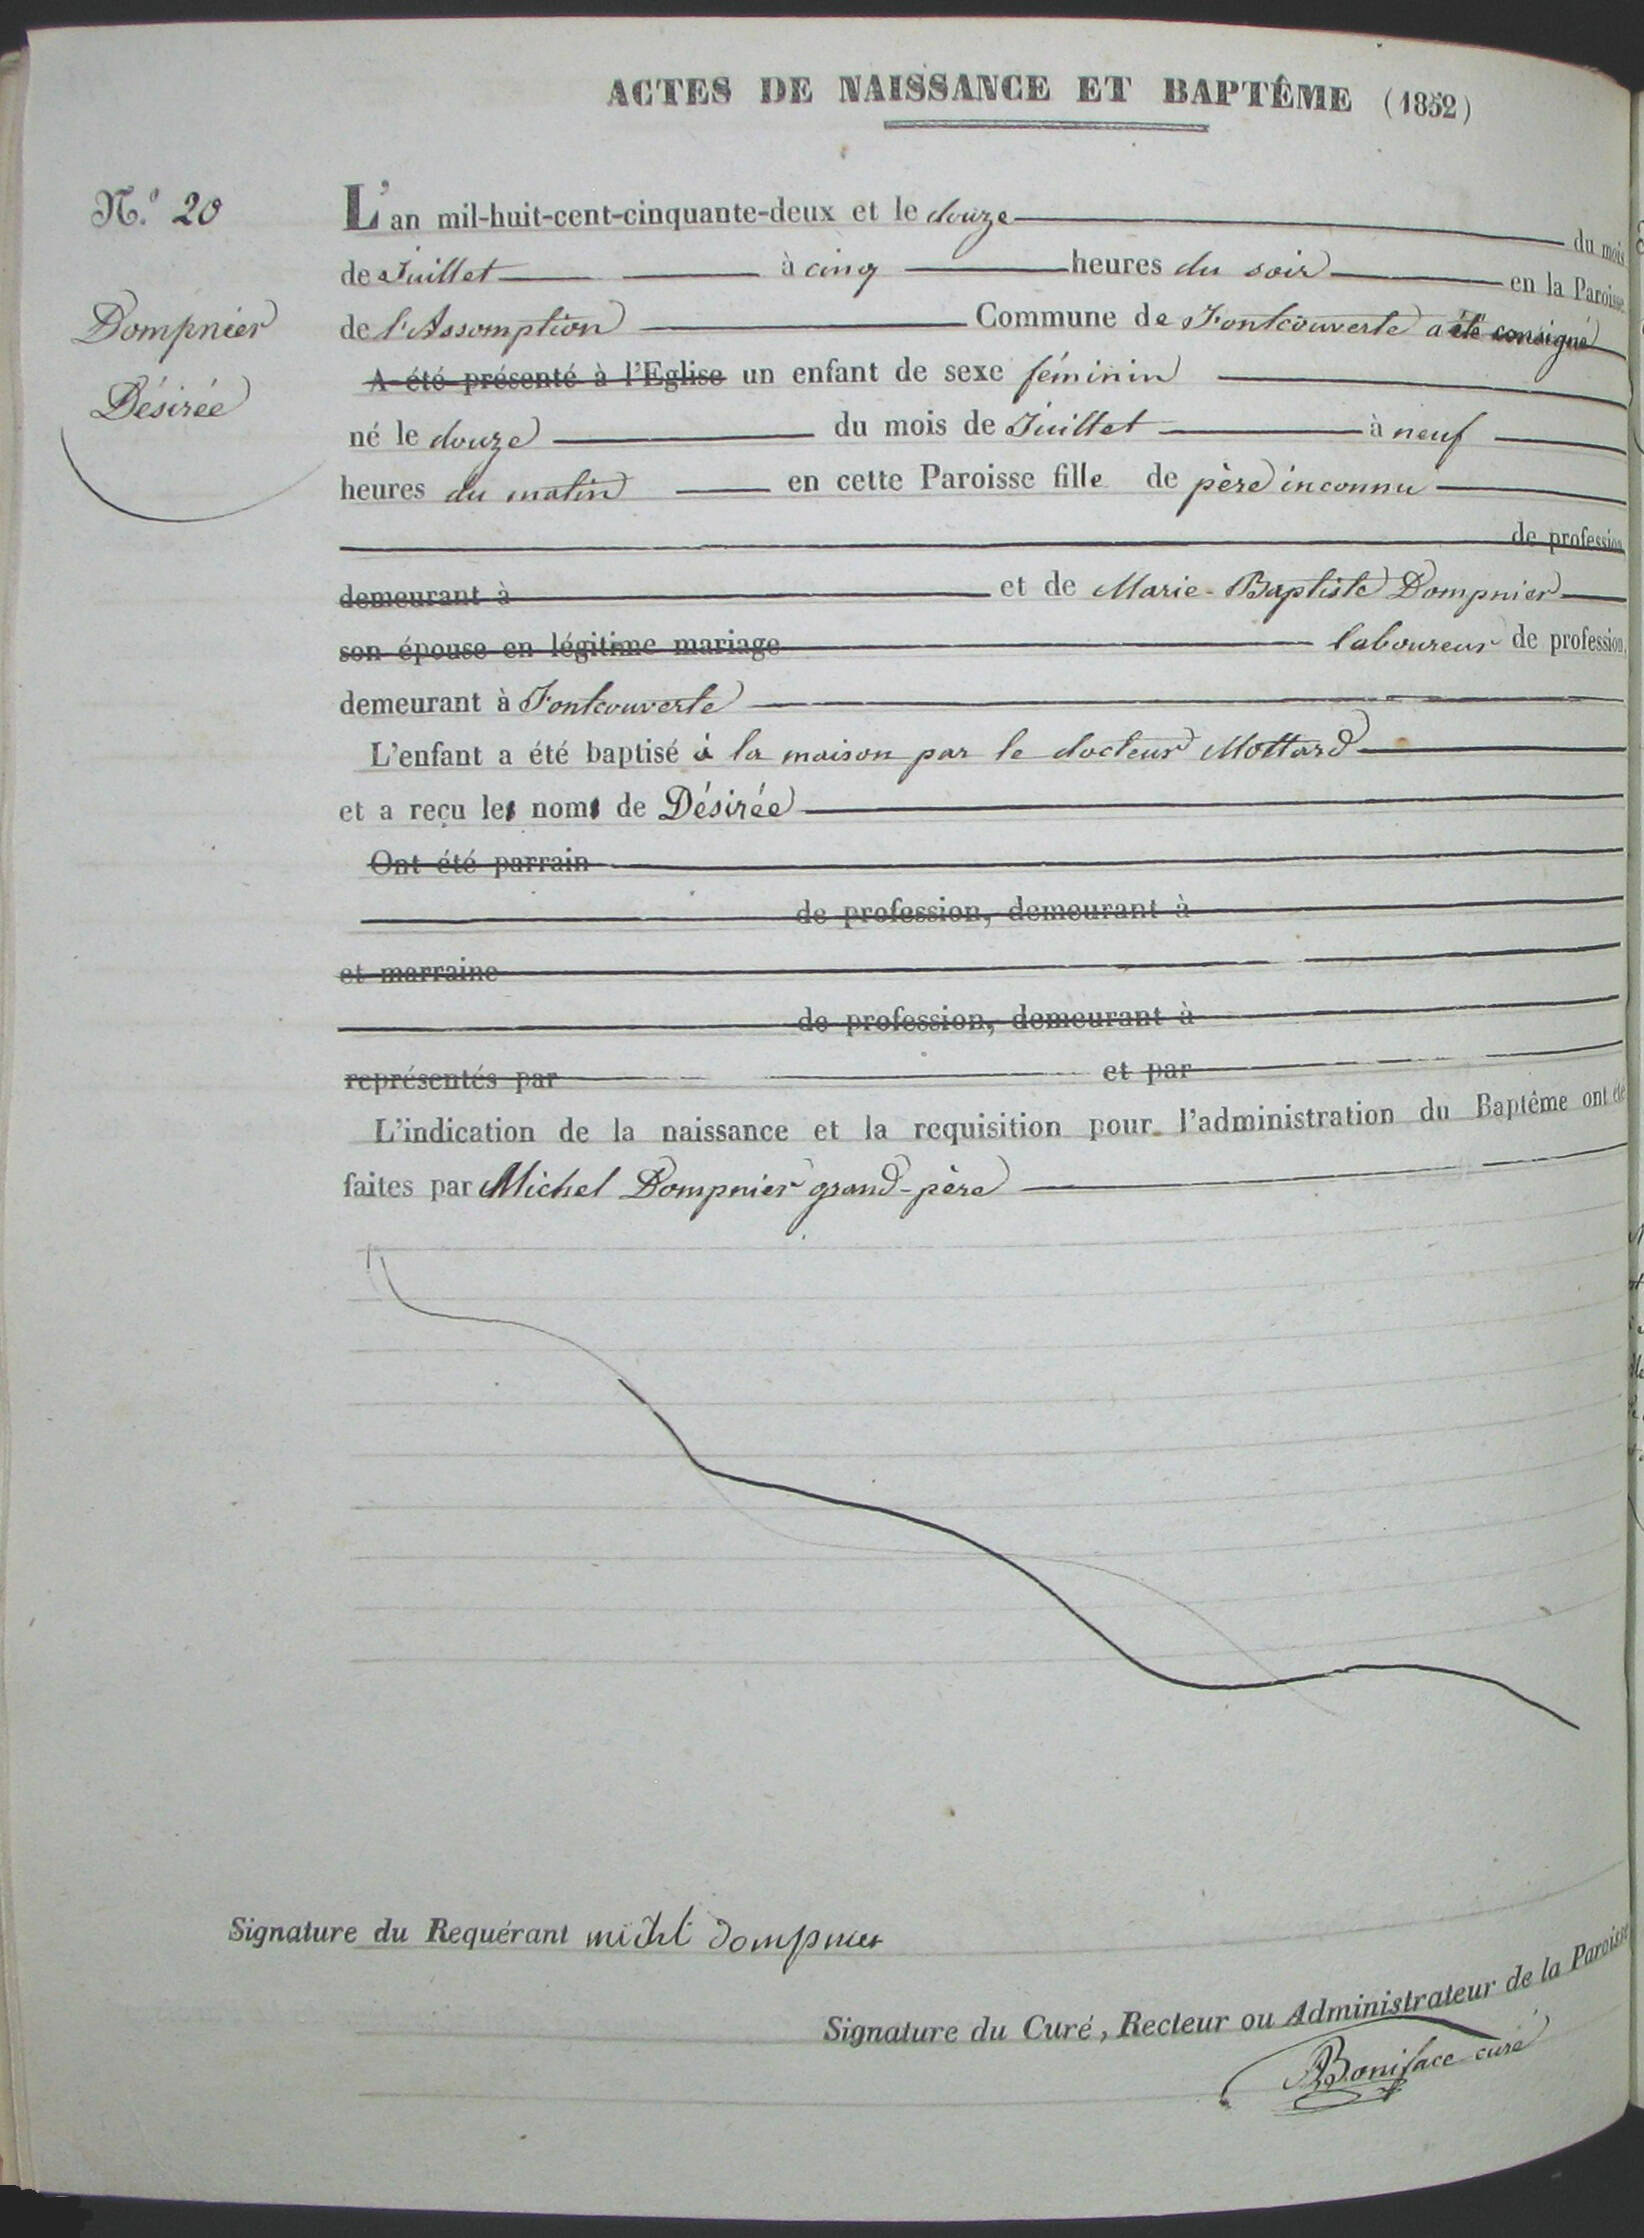 ACTES DE NAISSANCE ET BAPTÊME (1852)
N.º 20
Dompnier
Désirée
L'an mil-huit-cent-cinquante-deux et le douze du mois
de Juillet à cinq heures du soir en la Paroisse
de l'Assomption Commune de Fontcouverte a été consigné
A été présenté à l'Eglise un enfant de sexe féminin
né le douze du mois de Juillet à neuf
heures du matin en cette Paroisse fille de père inconnu
de profession
demeurant à et de Marie-Baptiste Dompnier
son épouse en légitime mariage laboureur de profession,
demeurant à Fontcouverte
L'enfant a été baptisé à la maison par le docteur Mottard
et a reçu les noms de Désirée
Ont été parrain
de profession, demeurant à
et marraine
de profession, demeurant à
représentés par et par
L'indication de la naissance et la requisition pour l'administration du Baptême ont été
faites par Michel Dompnier grand-père
Signature du Requérant michel dompnier
Signature du Curé, Recteur ou Administrateur de la Paroisse
Boniface curé